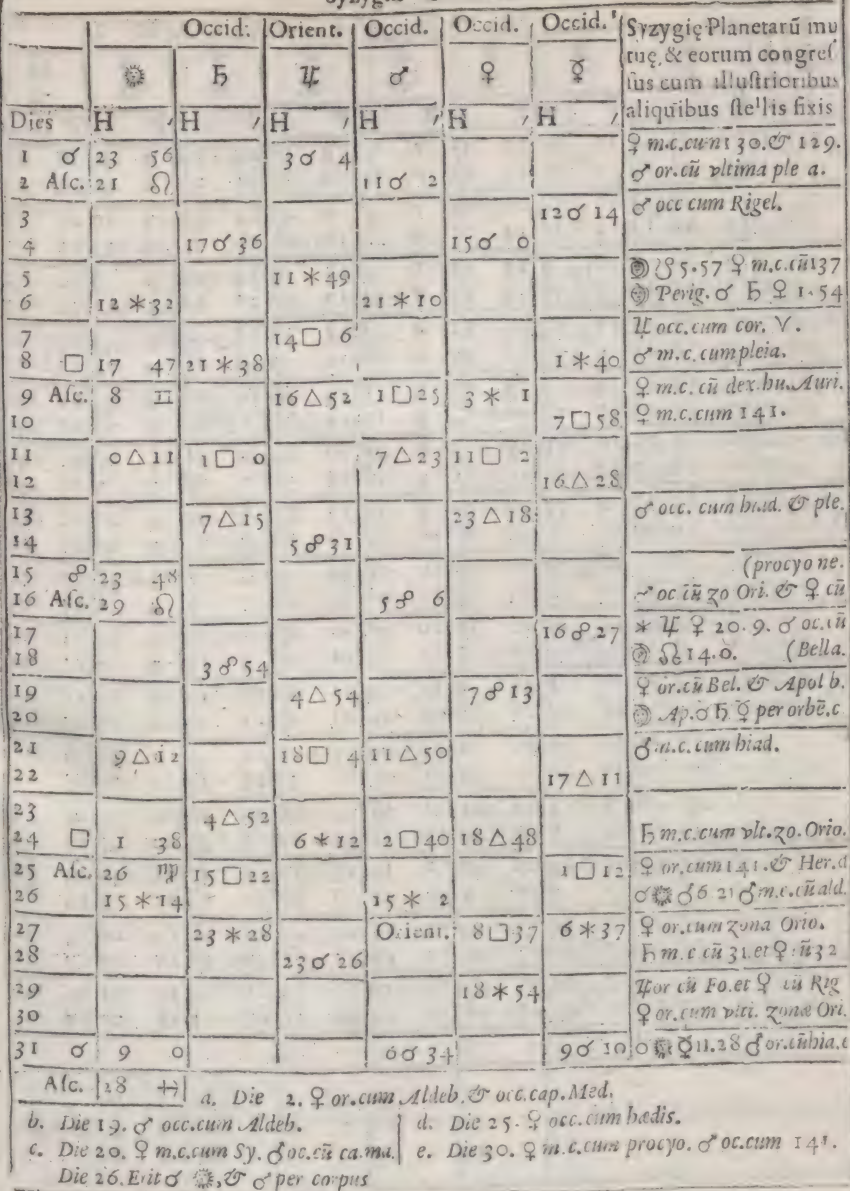 Occid. Orient. Occid. Occid. Occid. Syzygię Planetarũ mu
☼ ♄ ♃ ♂ ♀ ☿ tuę, & eorum congreſ
ſus cum illuſtrioribus
Dies H ′ H ′ H ′ H ′ H ′ H ′ aliquibus ſtellis fixis
1 ☌ 23 56 3 ☌ 4 ♀ m.c.cum 130. & 129.
2 Aſc. 21 ♌ 11 ☌ 2 ♂ or.cũ vltima ple a.
3 12 ☌ 14 ♂ occ cum Rigel.
4 17 ☌ 36 15 ☌ 0
5 11 ✶ 49 ☋ 5.57 ♀ m.c.cũ 137
6 12 ✶ 32 21 ✶ 10 Perig. ☌ ♄ ♀ 1.54
7 14 □ 6 ♃ occ.cum cor. ♈.
8 □ 17 47 21 ✶ 38 1 ✶ 40 ♂ m.c. cum pleia.
9 Aſc. 8 ♊ 16 △ 52 1 □ 25 3 ✶ 1 ♀ m.c. cũ dex.hu. Auri.
10 7 □ 58 ♀ m.c.cum 141.
11 0 △ 11 1 □ 0 7 △ 23 11 □ 2
12 16 △ 28
13 7 △ 15 23 △ 18 ♂ occ. cum hiad. & ple.
14 5 ☍ 31
15 ☍ 23 48 (procyone.
16 Aſc. 29 ♌ 5 ☍ 6 oc cũ zo Ori. & ♀ cũ
17 16 ☍ 27 ✶ ♃ ♀ 20.9. ♂ oc.cũ
18 3 ☍ 54 ☊ 14.0. (Bella.
19 4 △ 54 7 ☍ 13 ♀ or.cũ Bel. & Apol b.
20 Ap. ☌ ♄ ☿ per orbẽ.c
21 9 △ 12 18 □ 4 11 △ 50 ♂ m.c. cum hiad.
22 17 △ 11
23 4 △ 52
24 □ 1 38 6 ✶ 12 2 □ 40 18 △ 48 ♄ m.c.cum vlt.zo. Orio.
25 Aſc. 26 ♍ 15 □ 22 1 □ 12 ♀ or.cum 141. & Her.d
26 15 ✶ 14 15 ✶ 2 ☌ ☼ ♂ 6 21 ♂ m.c.cũ ald.
27 23 ✶ 28 Orient. 8 □ 37 6 ✶ 37 ♀ or.cum zona Orio.
28 23 ☌ 26 ♄ m.c cũ 31.et ♀ cũ 32
29 18 ✶ 54 ♃ or cũ Fo.et ♀ cũ Rig
30 ♀ or.cum vlti. zonæ Ori.
31 ☌ 9 0 6 ☌ 34 9 ☌ 10 ☌ ☼ ☿ 11.28 ♂ or.cũ hia.e
Aſc. 28 ♓ a. Die 2. ♀ or.cum Aldeb. & occ.cap.Med.
b. Die 19. ♂ occ.cum Aldeb. d. Die 25. ♀ occ.cum hædis.
c. Die 20. ♀ m.c.cum Sy. ♂ oc.cũ ca.ma. e. Die 30. ♀ m.c.cum procyo. ♂ oc.cum 141.
Die 26. Erit ☌ ☼, & ♂ per corpus